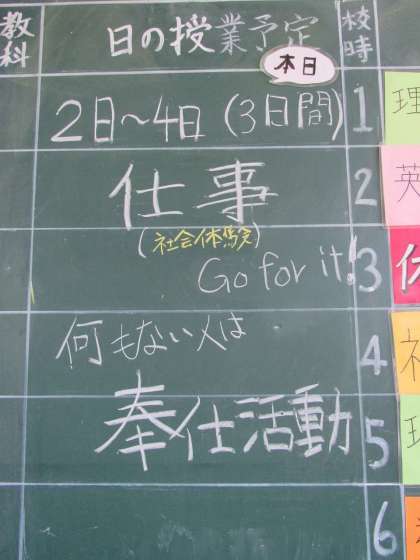 教科
日の授業予定
校時
本日
2日〜4日(3日間)
1
理
仕事
2
英
(社会体験)
Go for it!
3
何もない人は
4
奉仕活動
5
理
6